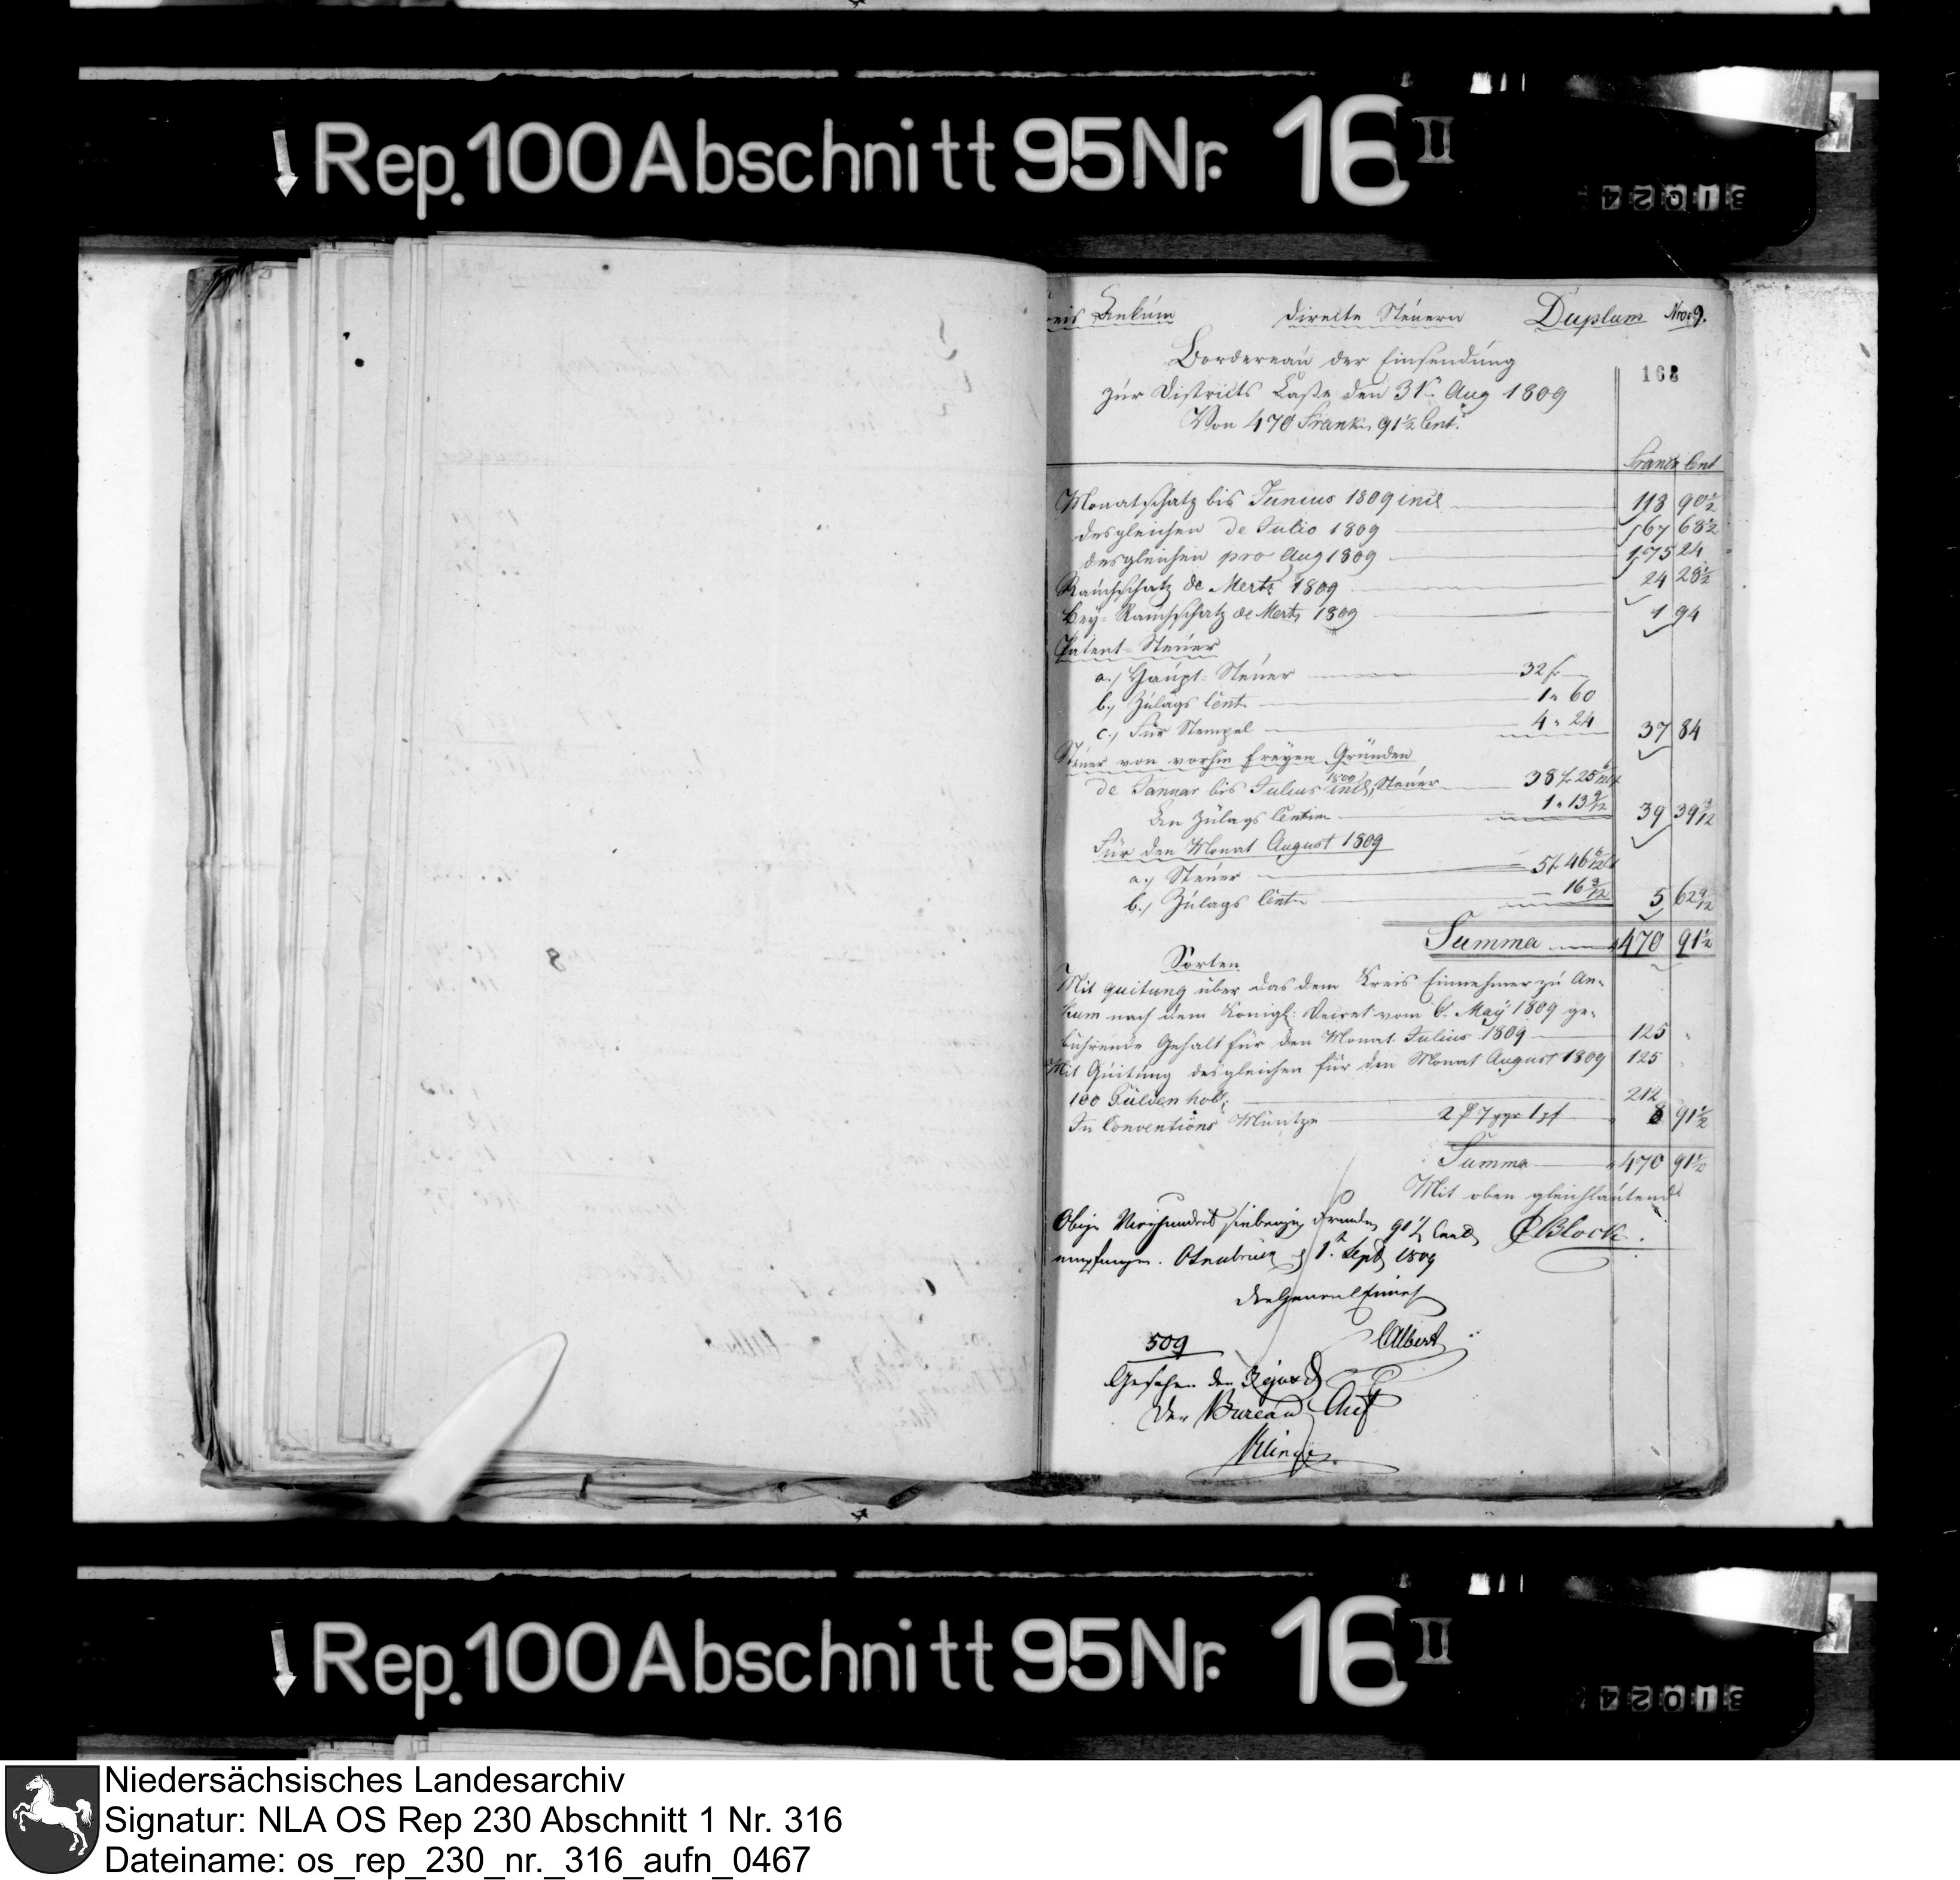 Rep. 100 Abschnitt 95 Nr. 16 II
31024
Kreis Ankum Directe Steuern Duplum Nro: 9.
Bordereau der Einsendung
168
zur Districts Casse den 31n Aug 1809
Von 470 Frank, 91 1/2 Cent:
Frank Cent
Monatschatz bis Junius 1809 incl 118 90 1/2
desgleichen de Julio 1809 67 68 1/2
desgleichen pro Aug 1809 175 24
Rauchschatz de Mertz 1809 24 28 1/2
Bey-Rauchschatz de Mertz 1809 1 94
Patent-Steuer
a.) Haupt-Steuer 32 fr
b.) Zulags Cent 1 " 60
c.) Für Stempel 4 " 24 37 84
Steuer von vorhin freyen Gründen
de Januar bis Julius 1809 incl, Steuer 38 fr 25 6/12 ct
An Zulags Centim 1 " 13 9/12 39 39 3/12
Für den Monat August 1809
a.) Steuer 5 fr 46 6/12 ct
b.) Zulags Cent 16 3/12 5 62 9/12
Summa 470 91 1/2
Sorten
Mit quitung über das dem Kreis Einnehmer zu An-
kum nach dem Königl: Decret vom 6. May 1809 ge-
bührende Gehalt für den Monat Julius 1809 125 "
Mit Quitung desgleichen für den Monat August 1809 125 "
100 Gulden holl: 212
In Conventions Müntze 2 rt 7 ggr 1 pf 8 91 1/2
Summa 470 91 1/2
Mit oben gleichlautend
Obige Vierhundert siebenzig Franken 91 1/2 Cent
Block.
empfangen. Osnabrück d 1t Sept 1809
der General Einneh
509 CAlbert
Gesehen den
Der Bureau Chef
Kling
Rep. 100 Abschnitt 95 Nr. 16 II
31024
Niedersächsisches Landesarchiv
Signatur: NLA OS Rep 230 Abschnitt 1 Nr. 316
Dateiname: os_rep_230_nr._316_aufn_0467